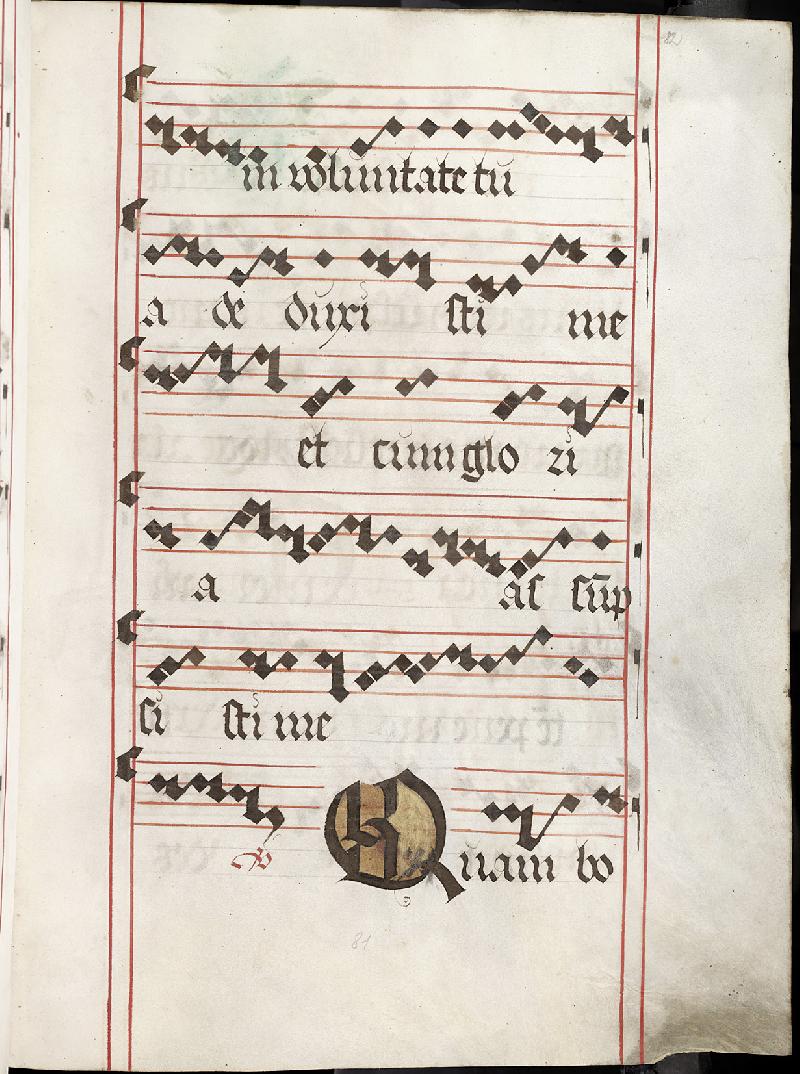 82
in voluntate tu
a de duxi sti me
et cum glo ri
a as sūp
si sti me
℣ Quam bo
81